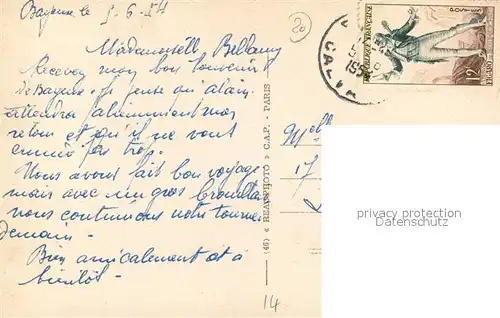 Bayeux le 5-6-54
20
Mademoiselle Bellamy
Recevez mon bon souvenir
de Bayeux. Je pense qu'alain
attendra patiemment mon
retour et qu'il ne vous
ennuie pas trop.
Nous avons fait bon voyage
mais avec un gros brouillard
nous continuons notre tournée
demain -
Bien amicalement et à
bientôt -
14
(46) « REAL-PHOTO » C.A.P. - PARIS
CALVA
195
REPUBLIQUE FRANÇAISE
POSTES
12F
Melle
17
privacy protection
Datenschutz